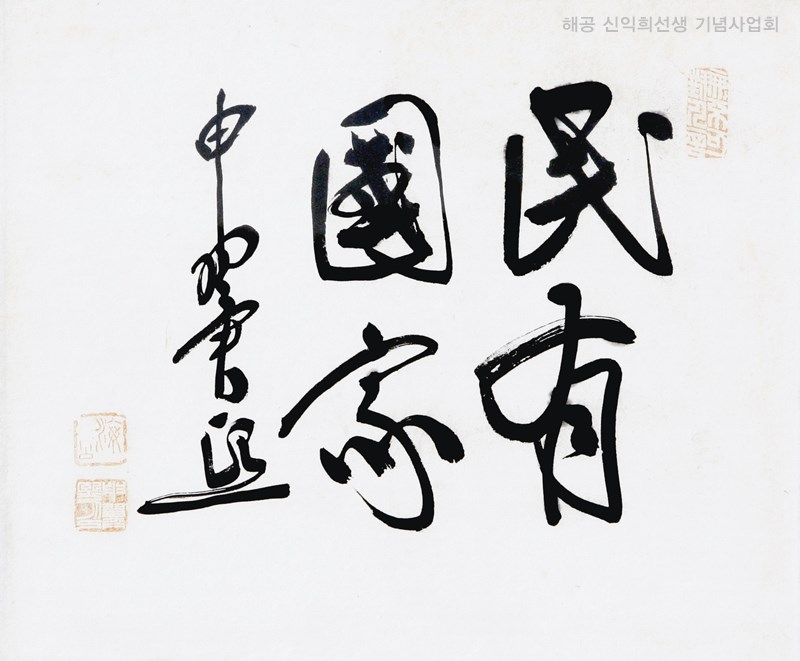 해공 신익희선생 기념사업회
民有
國家
申翼熙